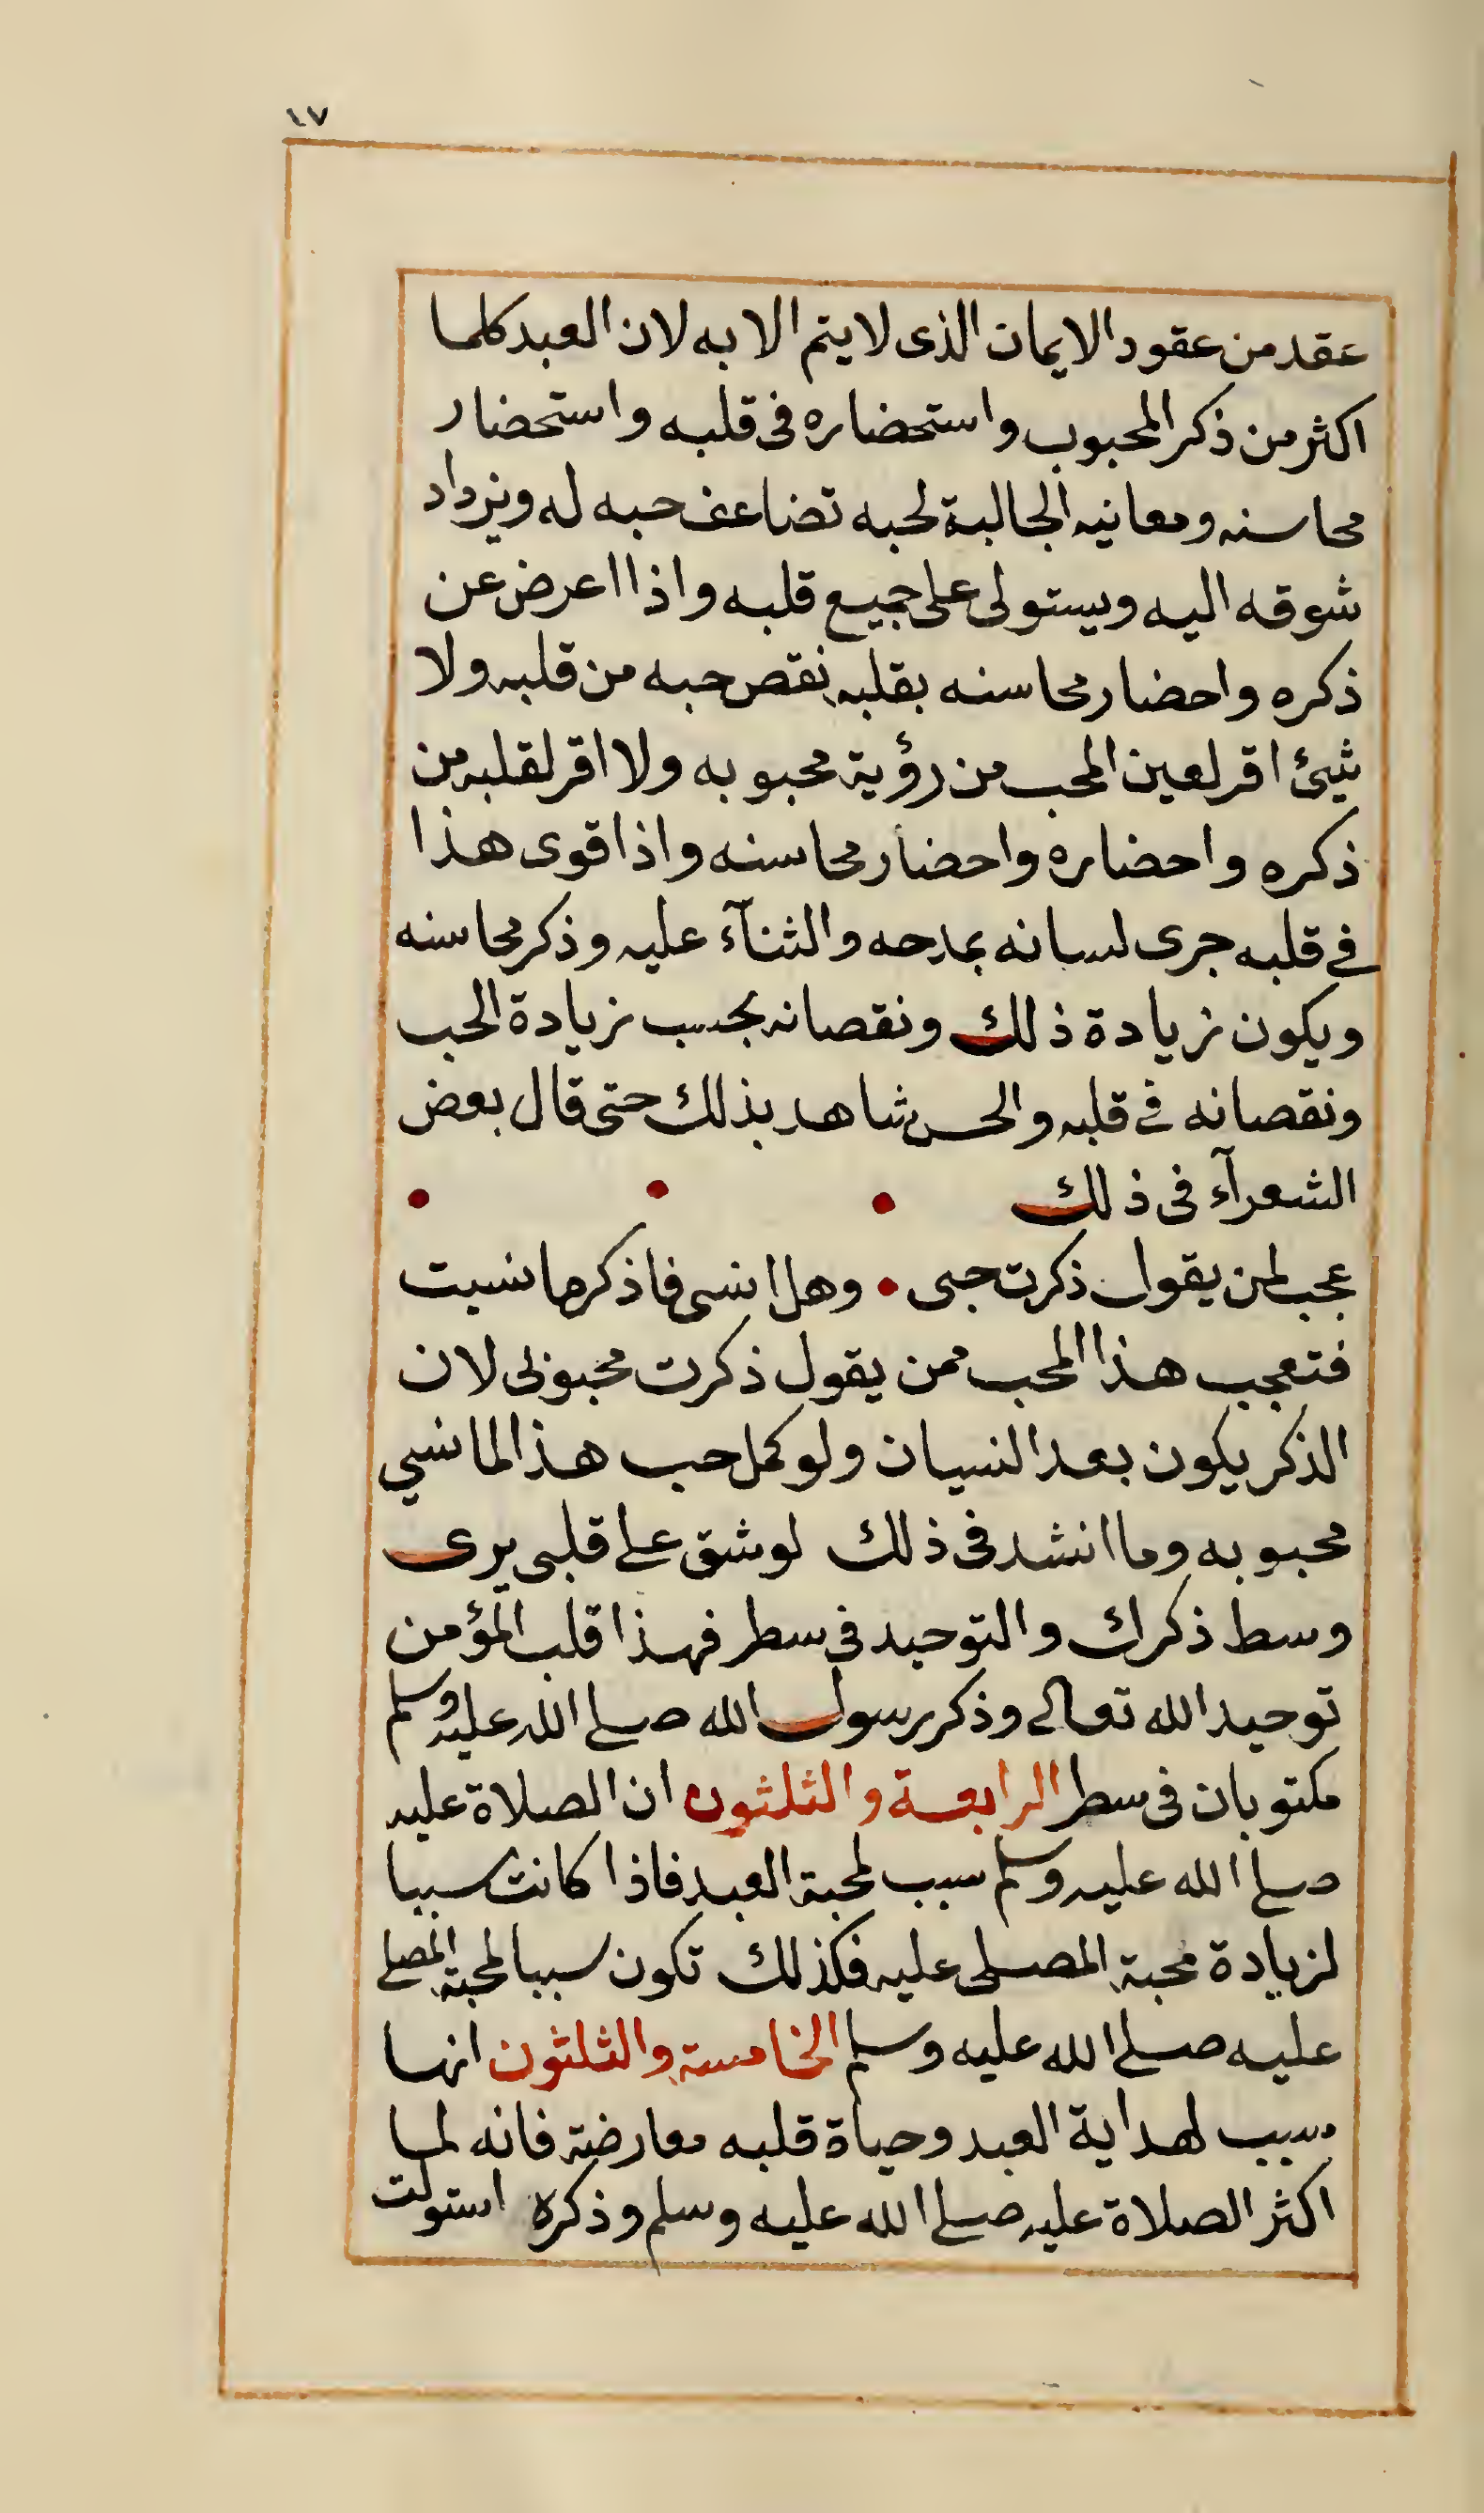 ١٧
عقد من عقود الايمان الذى لا يتم الا به لان العبد كلما
اكثر من ذكر المحبوب واستحضاره فى قلبه واستحضار
محاسنه ومعانيه الجالبة لحبه تضاعف حبه له ويزداد
شوقه اليه ويستولى على جميع قلبه واذا اعرض عن
ذكره واحضار محاسنه بقلبه نقص حبه من قلبه ولا
شيئ اقر لعين المحب من رؤية محبوبه ولا اقر لقلبه من
ذكره واحضاره واحضار محاسنه واذا قوى هذا
فى قلبه جرى لسانه بمدحه والثنآء عليه وذكر محاسنه
ويكون زيادة ذلك ونقصانه بحسب زيادة الحب
ونقصانه فى قلبه والحس شاهد بذلك حتى قال بعض
الشعرآء فى ذلك
عجب لمن يقول ذكرت حبى • وهل انسى فاذكر ما نسيت
فتعجب هذا المحب ممن يقول ذكرت محبوبى لان
الذكر يكون بعد النسيان ولو كمل حب هذا لما نسي
محبوبه وما انشد فى ذلك لو شق على قلبى يرى
وسط ذكرك والتوحيد فى سطر فهذا قلب المؤمن
توحيد الله تعالى وذكر رسول الله صلى الله عليه وسلم
مكتوبان فى سطر الرابعة والثلثون ان الصلاة عليه
صلى الله عليه وسلم سبب لمحبة العبد فاذا كانت سببا
لزيادة محبة المصلى عليه فكذلك تكون سببا لمحبة المصلى
عليه صلى الله عليه وسلم الخامسة والثلثون انها
سبب لهداية العبد وحياة قلبه معارضة فانه لما
اكثر الصلاة عليه صلى الله عليه وسلم وذكره استولت